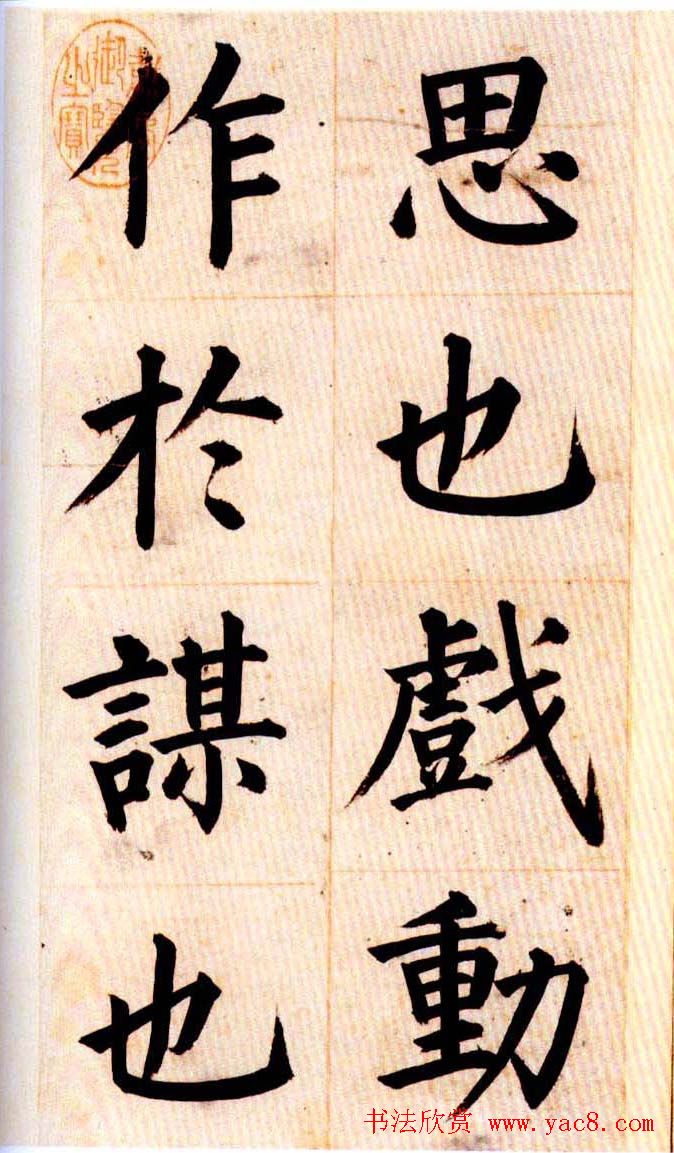 思也戲動
作於謀也
御覽之寶
书法欣赏 www.yac8.com